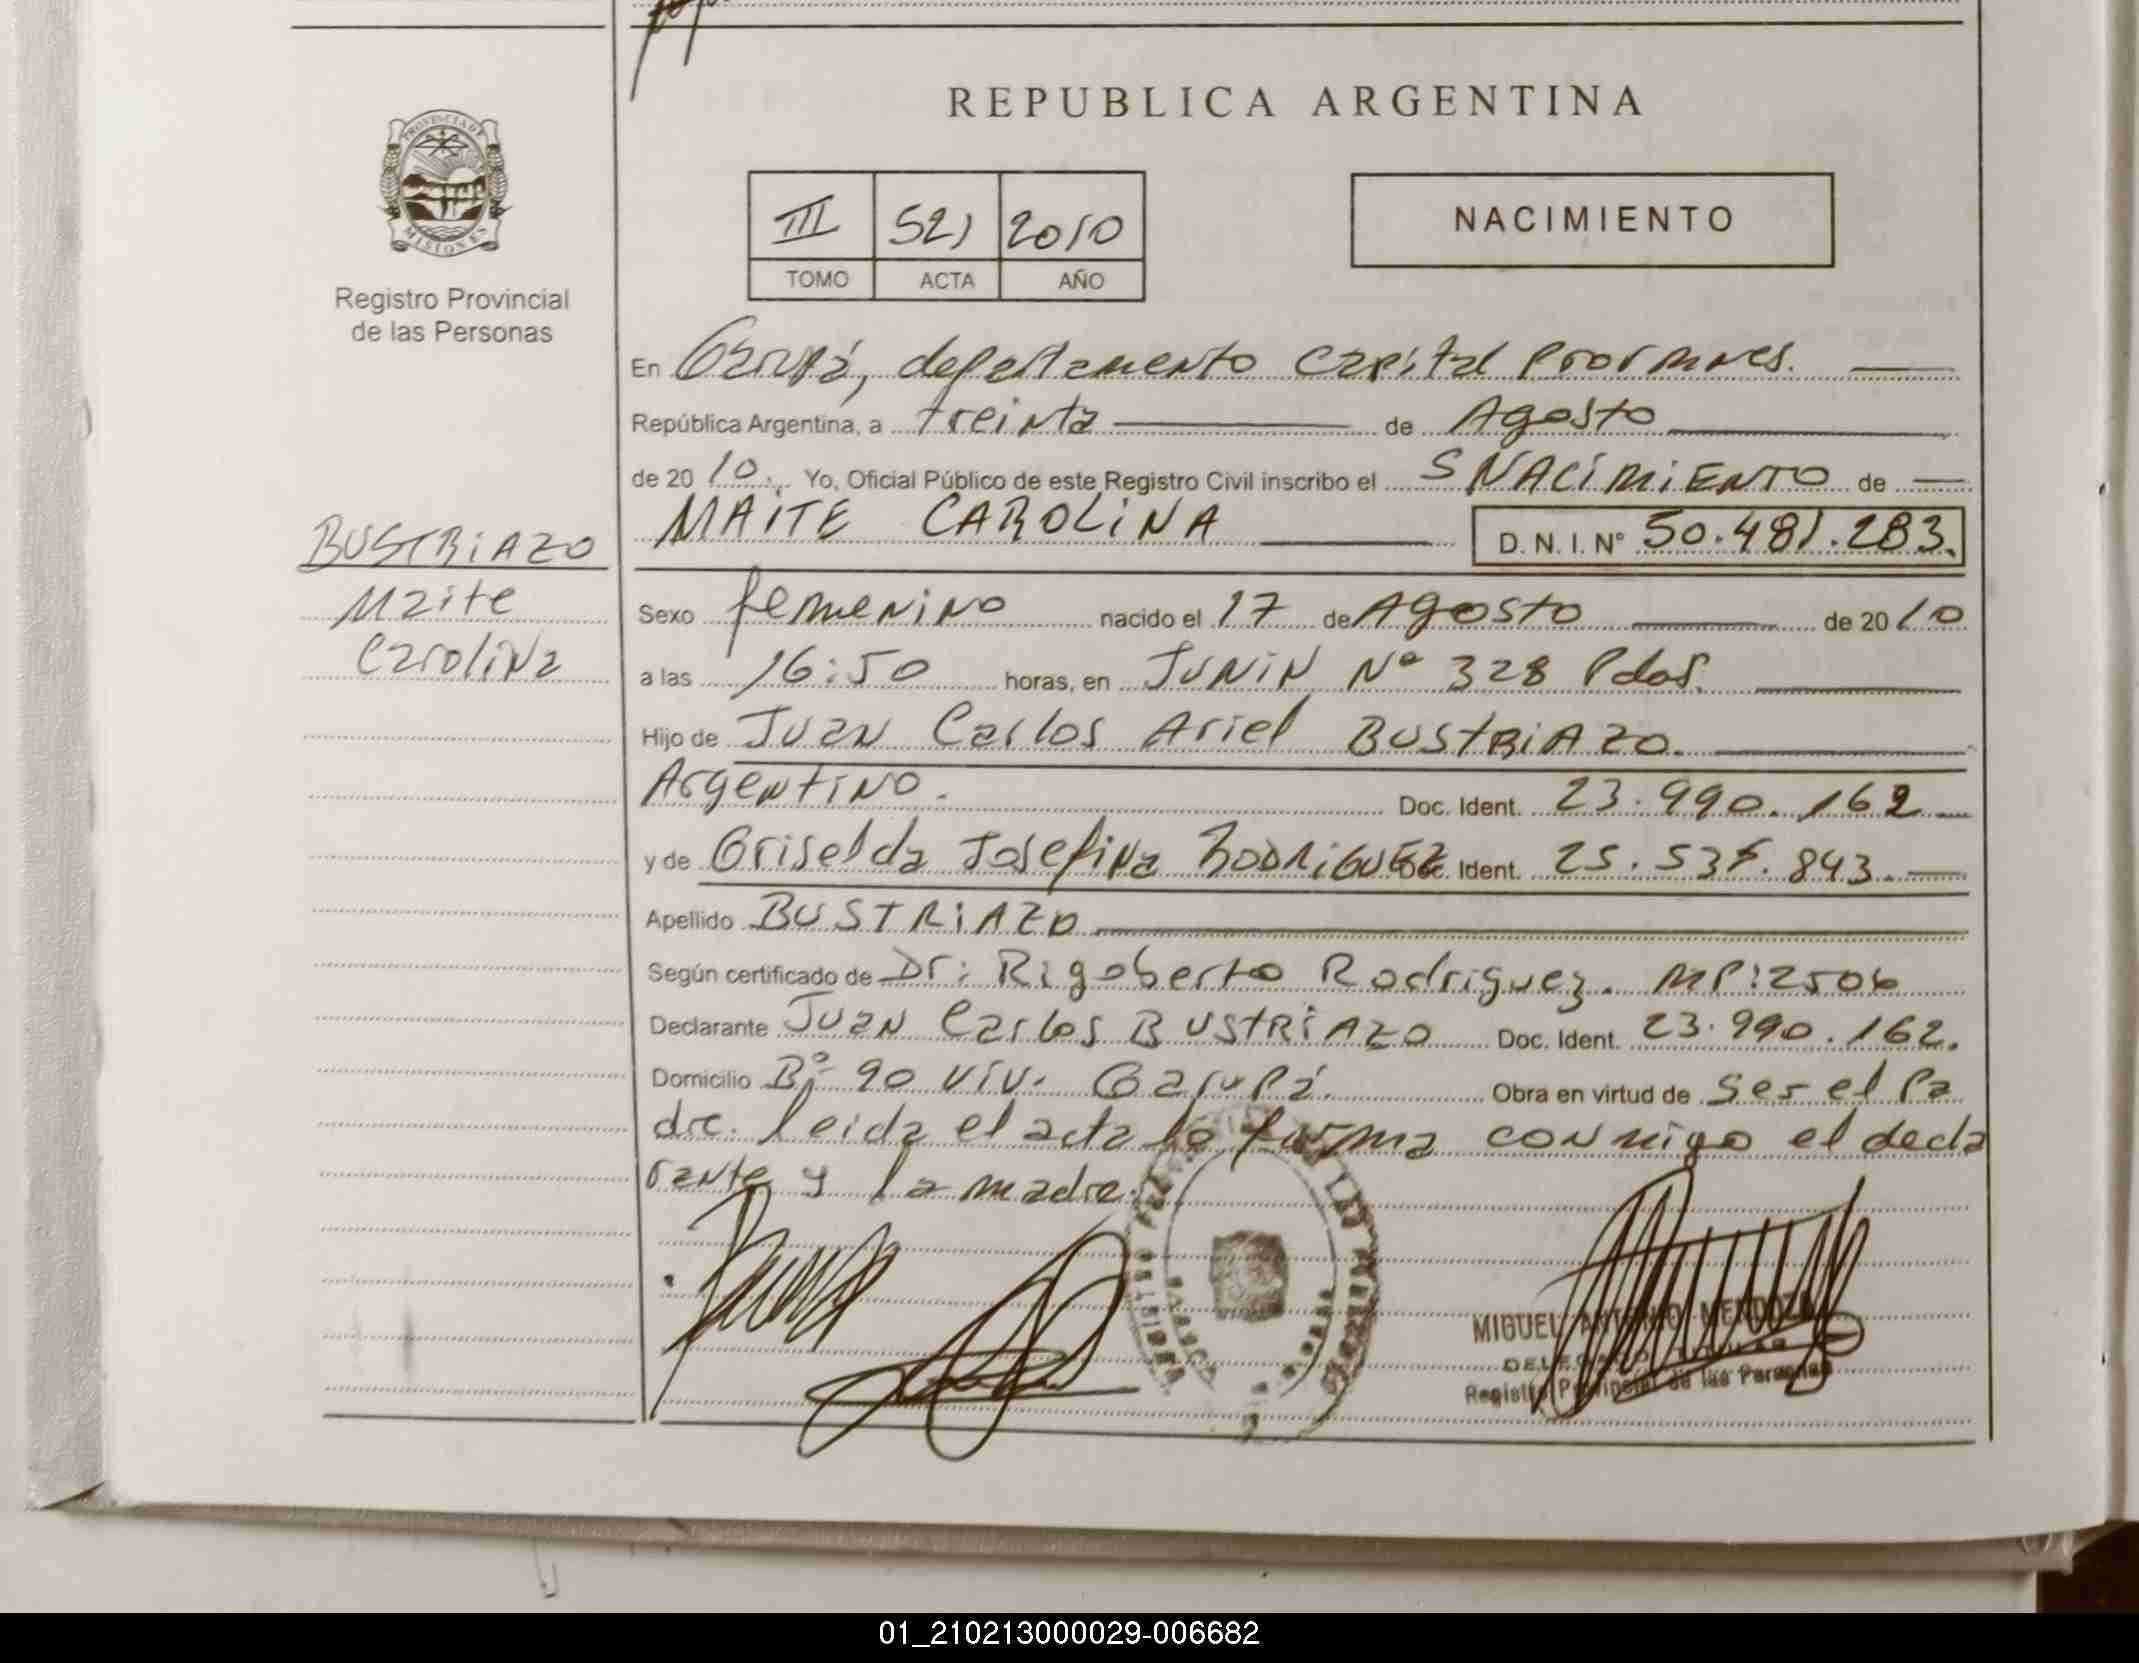 REPUBLICA ARGENTINA
PROVINCIA DE
MISIONES
Registro Provincial
de las Personas
III 521 2010
TOMO ACTA AÑO
NACIMIENTO
En Garupá, departamento Capital
República Argentina, a treinta de Agosto
de 20 10. Yo, Oficial Público de este Registro Civil inscribo el NACIMIENTO de
MAITE CAROLINA D. N. I. N° 50.481.283.
BUSTRIAZO
Maite
Carolina
Sexo femenino nacido el 17 de Agosto de 20 10
a las 16:50 horas, en JUNIN Nº 328 Pdas.
Hijo de Juan Carlos Ariel BUSTRIAZO.
Argentino. Doc. Ident. 23.990.162
y de Griselda Josefina RODRIGUEZ Doc. Ident. 25.537.843.
Apellido BUSTRIAZO
Según certificado de Dr: Rigoberto Rodriguez. MP:2506
Declarante Juan Carlos BUSTRIAZO Doc. Ident. 23.990.162.
Domicilio Bº 90 viv. Garupá. Obra en virtud de ser el Pa
dre. leida el acta la firma conmigo el decla
rante y la madre.
MIGUEL ANTONIO MENDOZA
DELEGADO TITULAR
Registro Provincial de las Personas
01_210213000029-006682